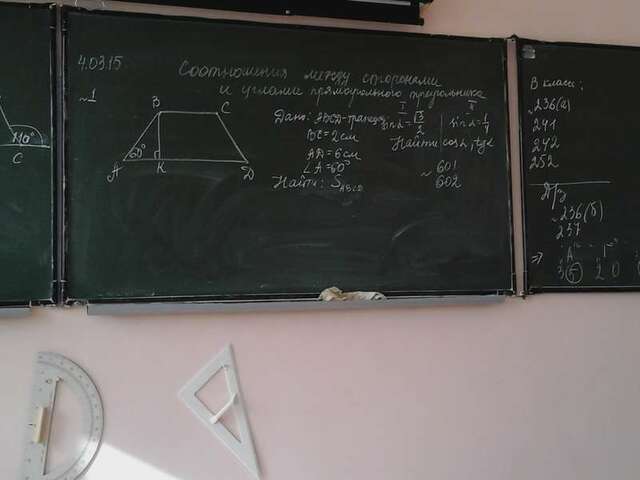 110°
C
4.03.15
Соотношения между сторонами
и углами прямоугольного треугольника
~1
B C
60°
A K D
Дано: ABCD-трапеция
BC=2см
AD=6см
∠A=60°
Найти: S_ABCD
I
sin α=√3/2
II
sin α=1/4
Найти cos α, tg α
~ 601
602
В классе:
~236(а)
241
242
252
Д/з
~236(б)
237
⇒